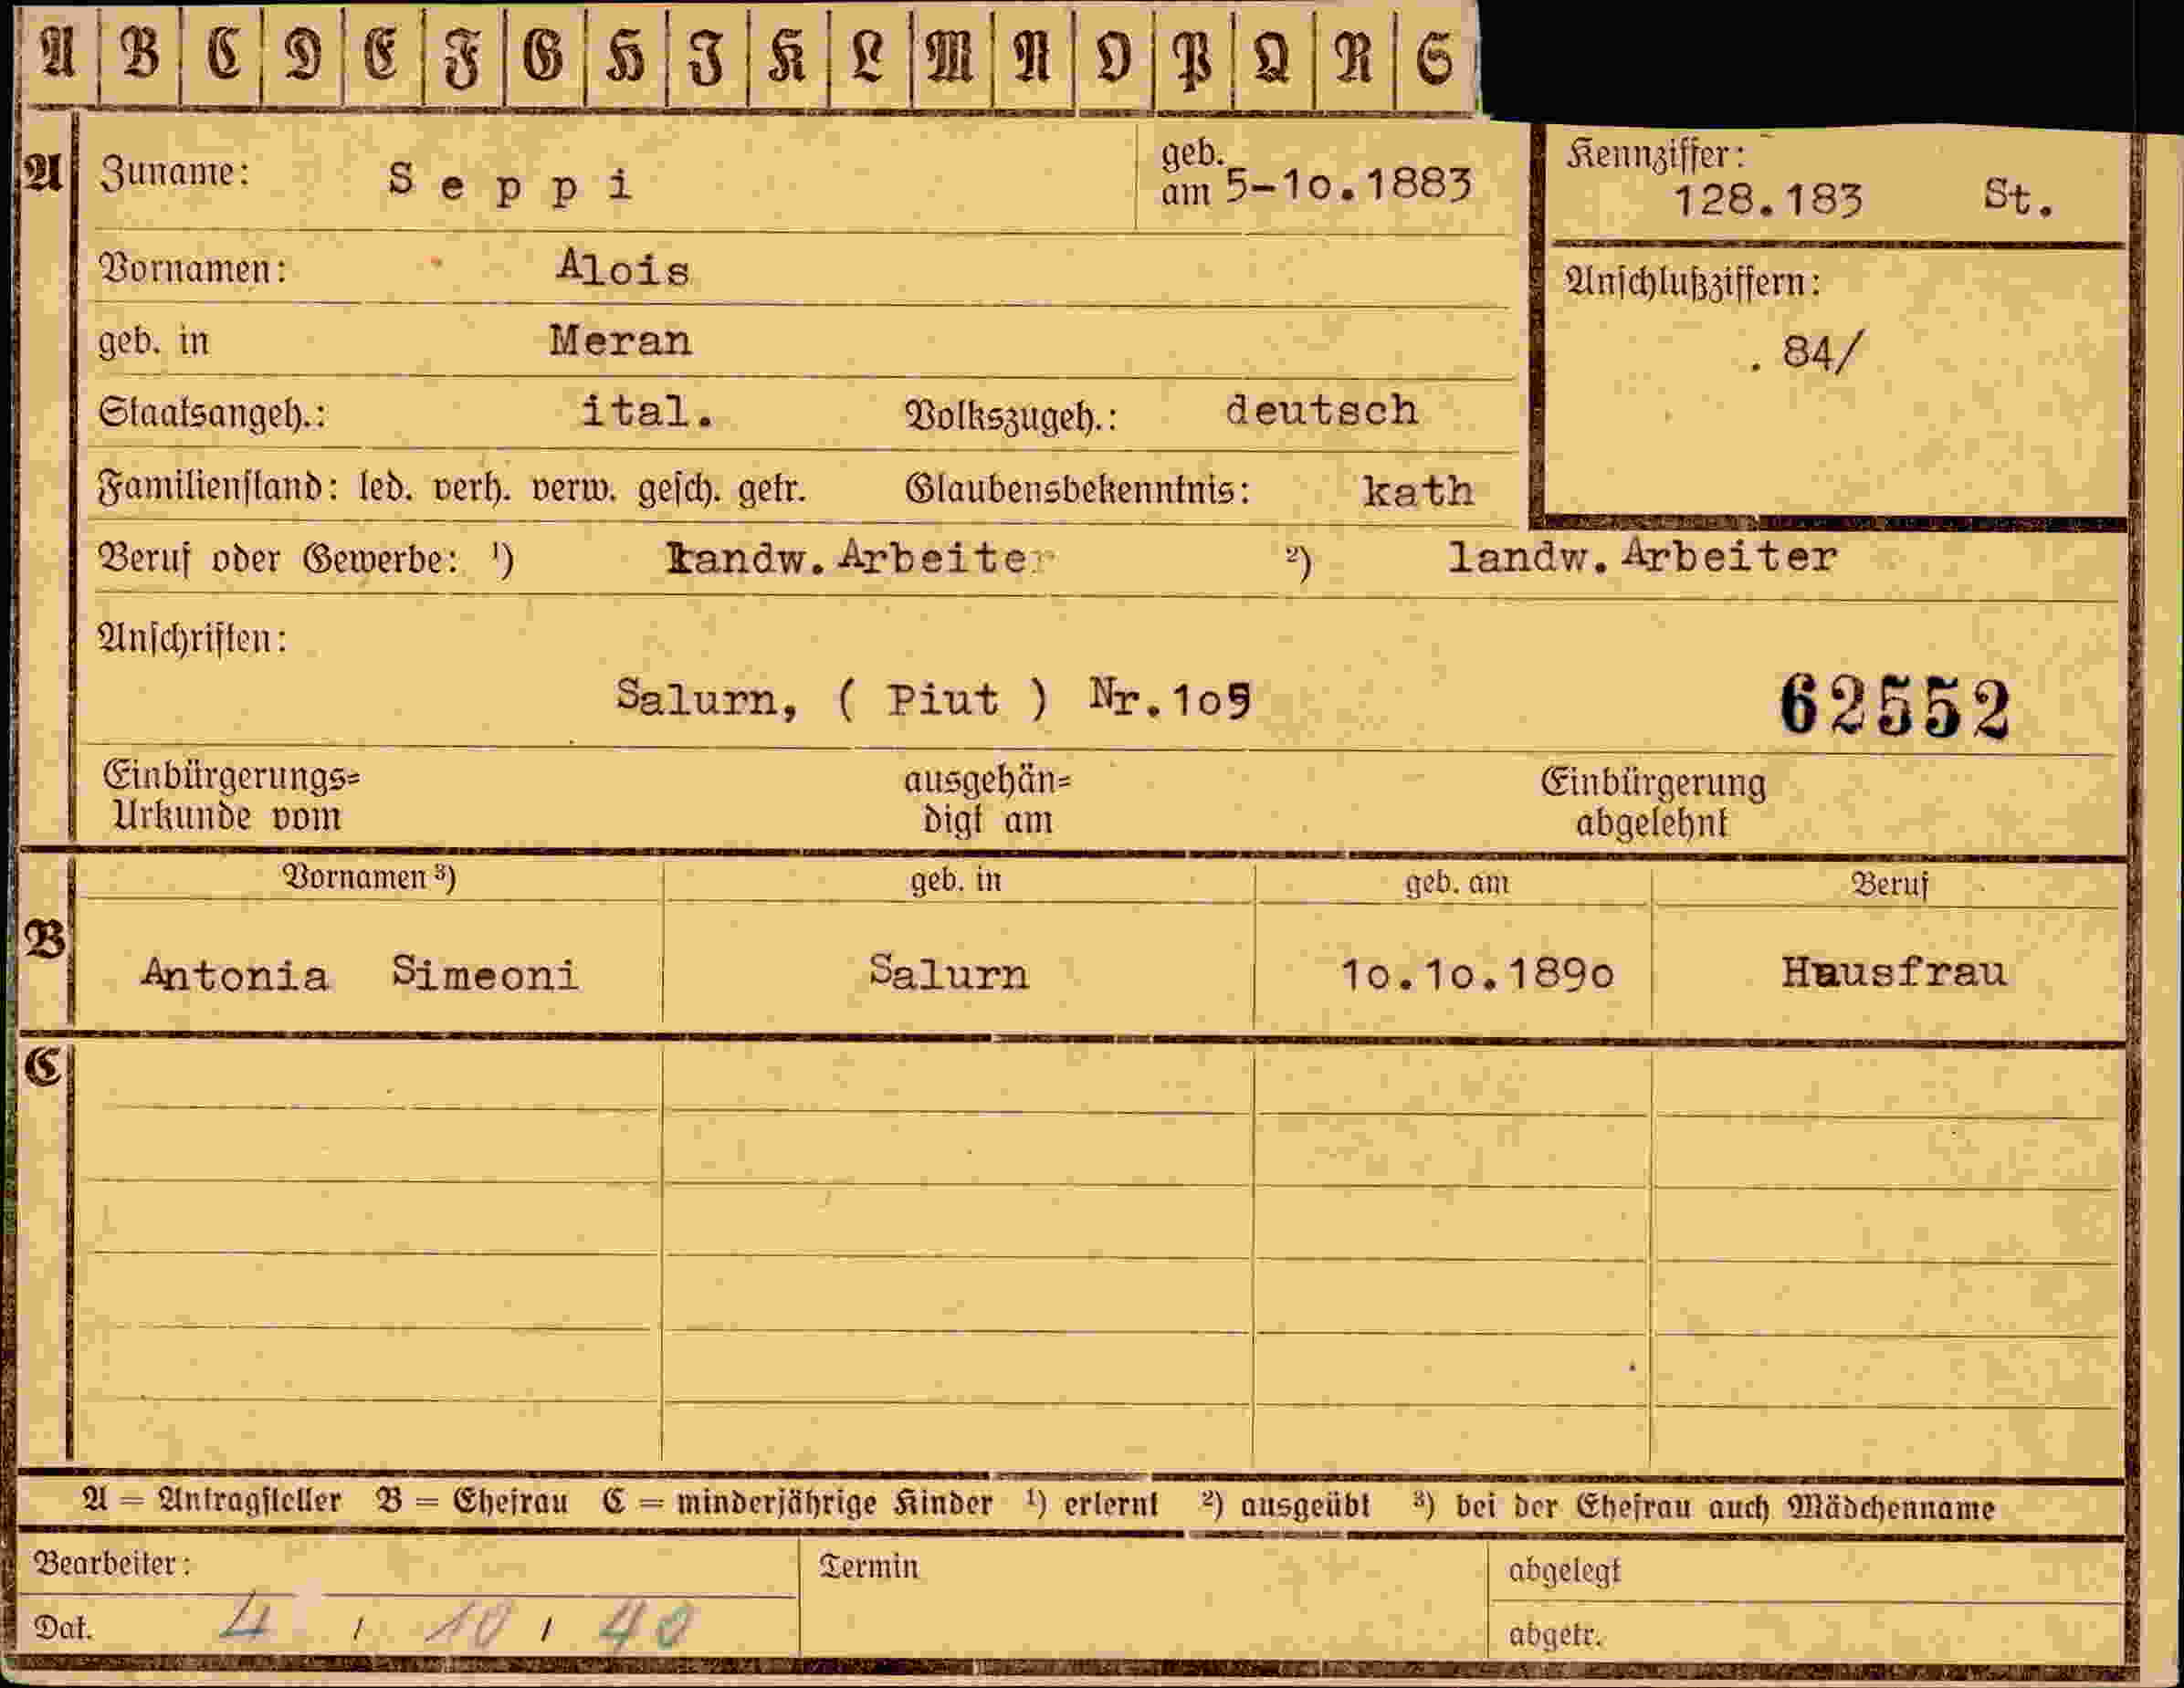 A B C D E F G H I K L M N O P Q R S
A Zuname: Seppi geb. am 5-10.1883 Kennziffer: 128.183 St.
Vornamen: Alois Anschlußziffern:
geb. in Meran . 84/
Staatsangeh.: ital. Volkszugeh.: deutsch
Familienstand: led. verh. verw. gesch. getr. Glaubensbekenntnis: kath
Beruf oder Gewerbe: ¹) landw. Arbeiter ²) landw. Arbeiter
Anschriften:
Salurn, ( Piut ) Nr.109 62552
Einbürgerungs= ausgehän= Einbürgerung
Urkunde vom digt am abgelehnt
Vornamen ³) geb. in geb. am Beruf
B Antonia Simeoni Salurn 10.10.1890 Hausfrau
C
A = Antragsteller B = Ehefrau C = minderjährige Kinder ¹) erlernt ²) ausgeübt ³) bei der Ehefrau auch Mädchenname
Bearbeiter: Termin abgelegt
Dat. 4 / 10 / 40 abgetr.